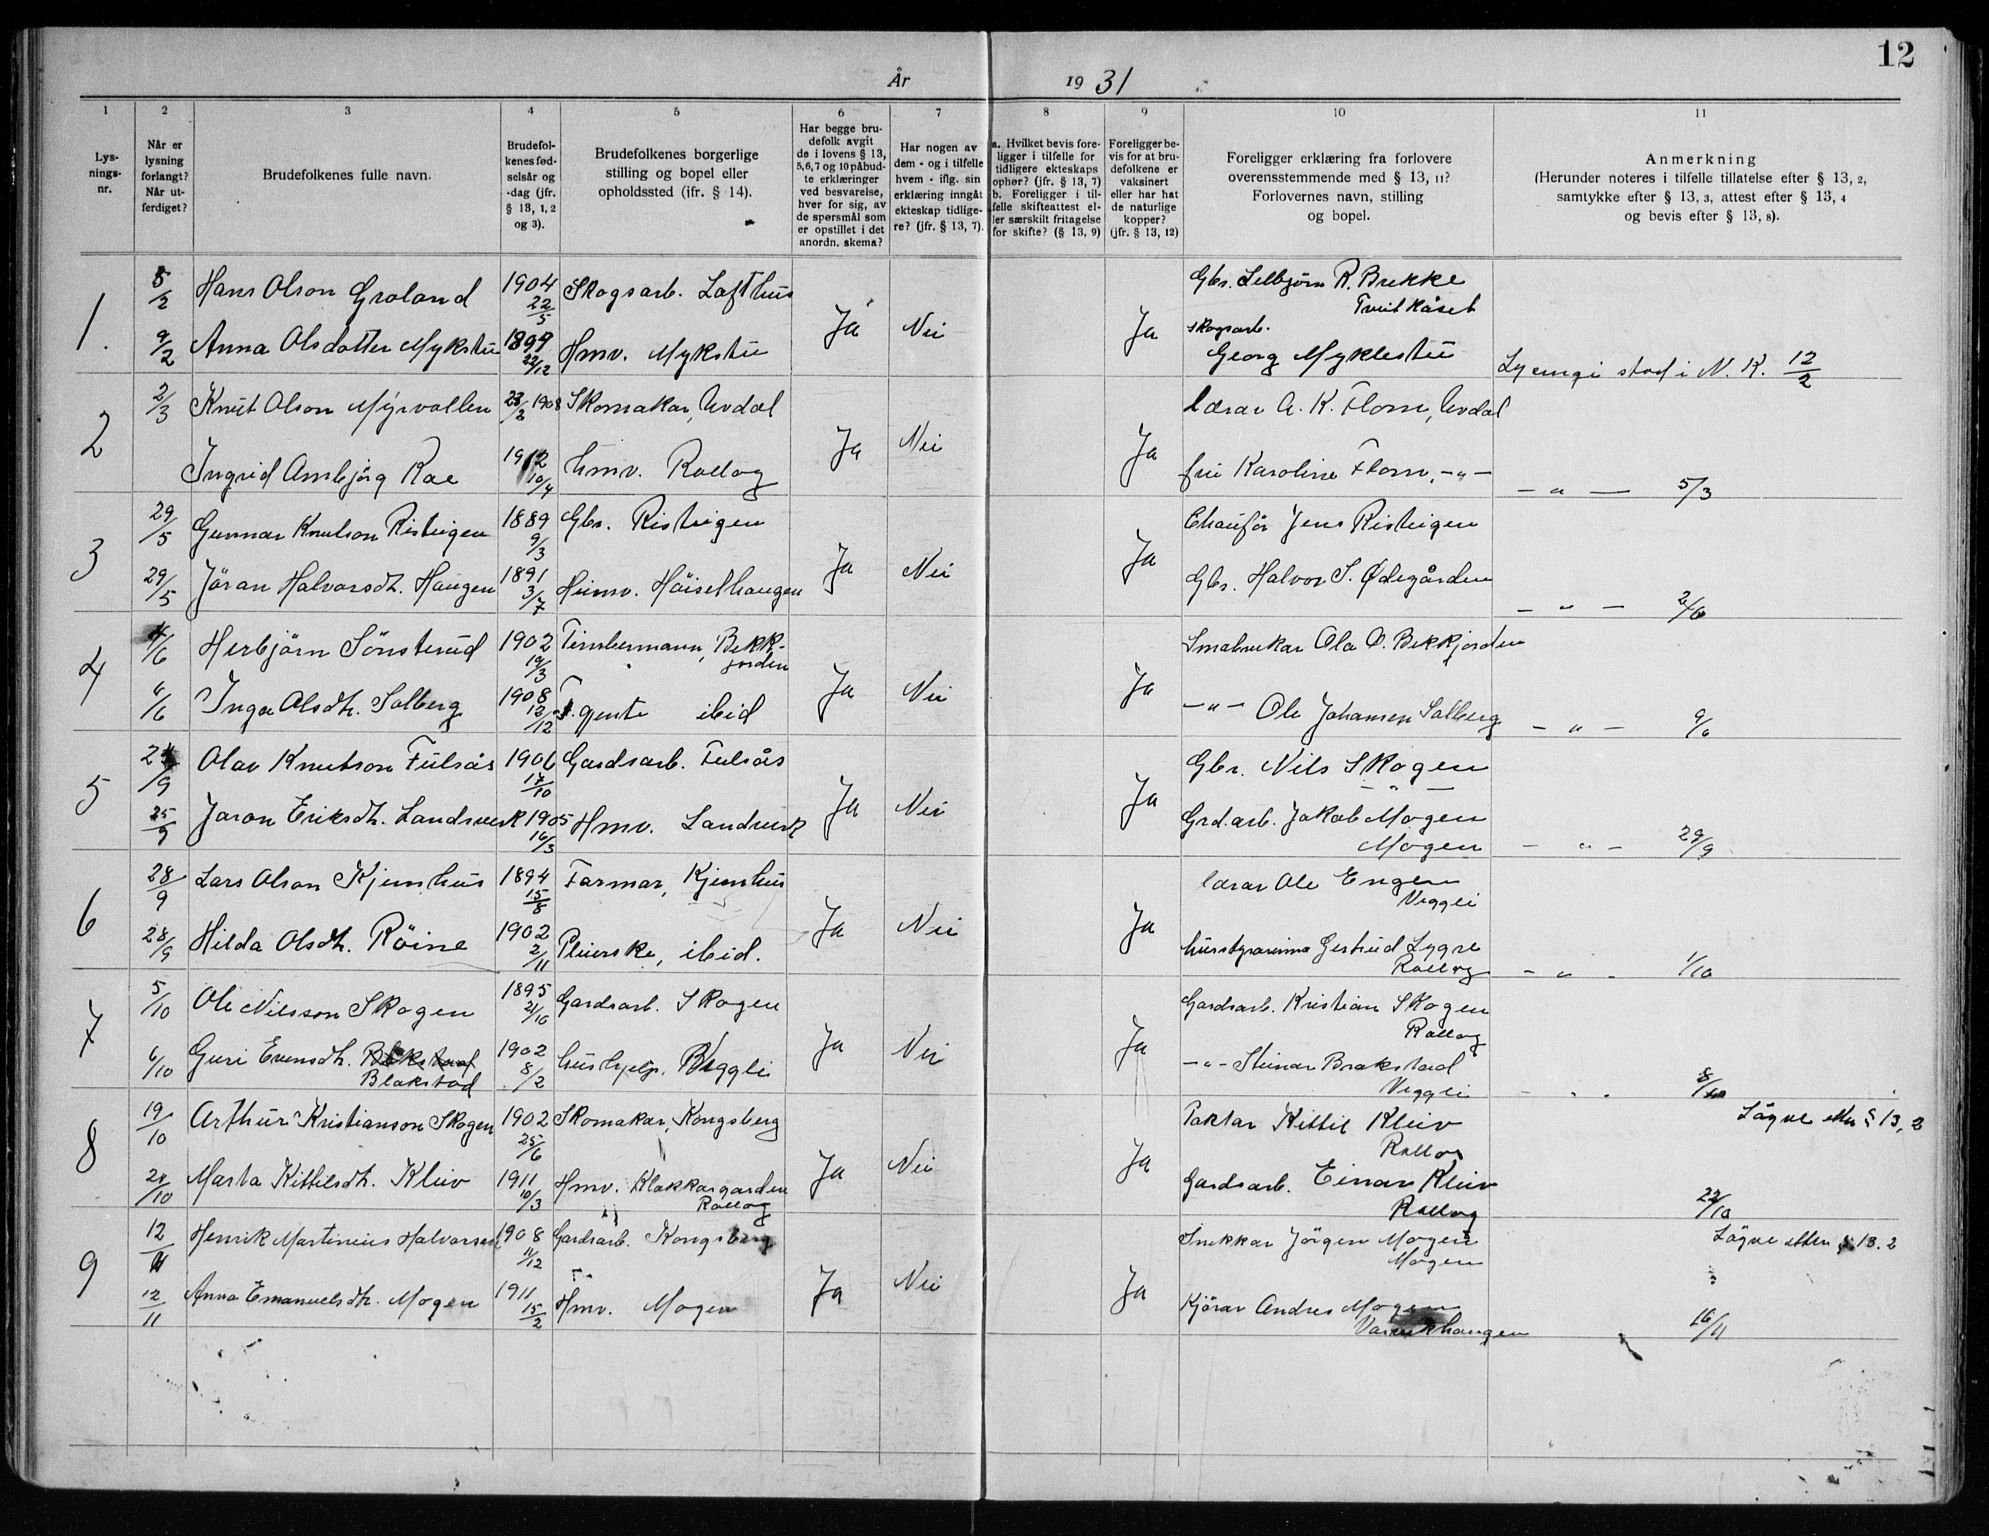 12
År 1931
1 2 3 4 5 6 7 8 9 10 11
Lys-
nings-
nr.
Når er
lysning
forlangt?
Når ut-
ferdiget?
Brudefolkenes fulle navn.
Brudefol-
kenes fød-
selsår og
-dag (jfr.
§ 13, 1, 2
og 3).
Brudefolkenes borgerlige
stilling og bopel eller
opholdssted (jfr. § 14).
Har begge bru-
defolk avgit
de i lovens § 13,
5,6,7 og 10 påbud-
te erklæringer
ved besvarelse,
hver for sig, av
de spørsmål som
er opstillet i det
anordn. skema?
Har nogen av
dem - og i tilfelle
hvem - iflg. sin
erklæring inngåt
ekteskap tidlige-
re? (jfr. § 13, 7).
a. Hvilket bevis fore-
ligger i tilfelle for
tidligere ekteskaps
ophør? (jfr. § 13, 7)
b. Foreligger i til-
felle skifteattest el-
ler særskilt fritagelse
for skifte? (§ 13, 9)
Foreligger be-
vis for at bru-
defolkene er
vaksinert
eller har hat
de naturlige
kopper?
(jfr. § 13, 12)
Foreligger erklæring fra forlovere
overensstemmende med § 13, 11?
Forlovernes navn, stilling
og bopel.
Anmerkning
(Herunder noteres i tilfelle tillatelse efter § 13, 2,
samtykke efter § 13, 3, attest efter § 13, 4
og bevis efter § 13, 8).
1. 5/2 Hans Olson Groland 1904 22/5 Skogsarb. Lofthus Ja Nei Ja Gbr. Lelbjørn R. Brekke
Tveitkåset
9/2 Anna Olsdotter Mykstu 1899 22/12 Hmv. Mykstu skogsarb.
Georg Myklestu Lysingi stod i N. K. 12/2
2 2/3 Knut Olson Myrvollen 23/2 1908 Skomakar, Uvdal Ja Nei Ja lærar A. K. Flom, Uvdal
Ingrid Ambjörg Roe 1912 10/4 hmv. Rollag fru Karoline Flom, -"- - " - 5/3
3 29/5 Gunnar Knutson Risteigen 1889 9/3 Gbr. Risteigen Ja Nei Ja Chaufør Jens Risteigen
29/5 Jöran Halvorsdt. Haugen 1891 3/7 Heimv. Höisethaugen Gbr. Halvor S. Ødegården - " - 2/6
4 4/6 Herbjörn Sönsterud 1902 19/3 Timbermann, Bekk-
jorden Ja Nei Ja Småbrukar Ola O. Bekkjorden
6/6 Inga Olsdt. Solberg 1908 12/12 T. gjente ibid -"- Ole Johansen Solberg - " - 9/6
5 24/9 Olav Knutson Fulsås 1906 17/10 Gardsarb. Fulsås Ja Nei Ja Gbr. Nils Skogen
- " -
25/9 Joron Eriksdt. Landsverk 1905 16/3 Hmv. Landverk Grd.arb. Jakob Mogen
Mogen - " - 29/9
6 28/9 Lars Olson Kjemhus 1894 15/8 Farmar, Kjemhus Ja Nei Ja lærar Ole Engen
Veggli
28/9 Hilda Olsdt. Röine 1902 2/11 Pleierske, ibid. husstyrarinna Gertrud Lygre
Rollag - " - 1/10
7 5/10 Ole Nilsson Skogen 1895 21/10 Gardsarb. Skogen Ja Nei Ja Gardsarb. Kristian Skogen
Rollag
6/10 Guri Evensdt.
Blakstad 1902 8/2 hushjelp. Veggli -"- Steinar Brakstad
Veggli - " - 8/10
8 19/10 Arthur Kristianson Skogen 1902 25/6 Skomakar, Kongsberg Ja Nei Ja Paktar Kittil Kleiv
Rollag Løgve etter § 13, 2
20/10 Marta Kittilsdt. Kleiv 1911 10/3 Hmv. Klokkargarden
Rollag Gardsarb. Einar Kleiv
Rollag 22/10
9 12/11 Henrik Martinius Halvorsen 1908 11/12 Gardsarb. Kongsberg Ja Nei Ja Snekkar Jörgen Mogen
Mogen Løgve etter § 13. 2
12/11 Anna Emanuelsdt. Mogen 1911 15/2 Hmv. Mogen Kjörar Andres Mogen
16/11